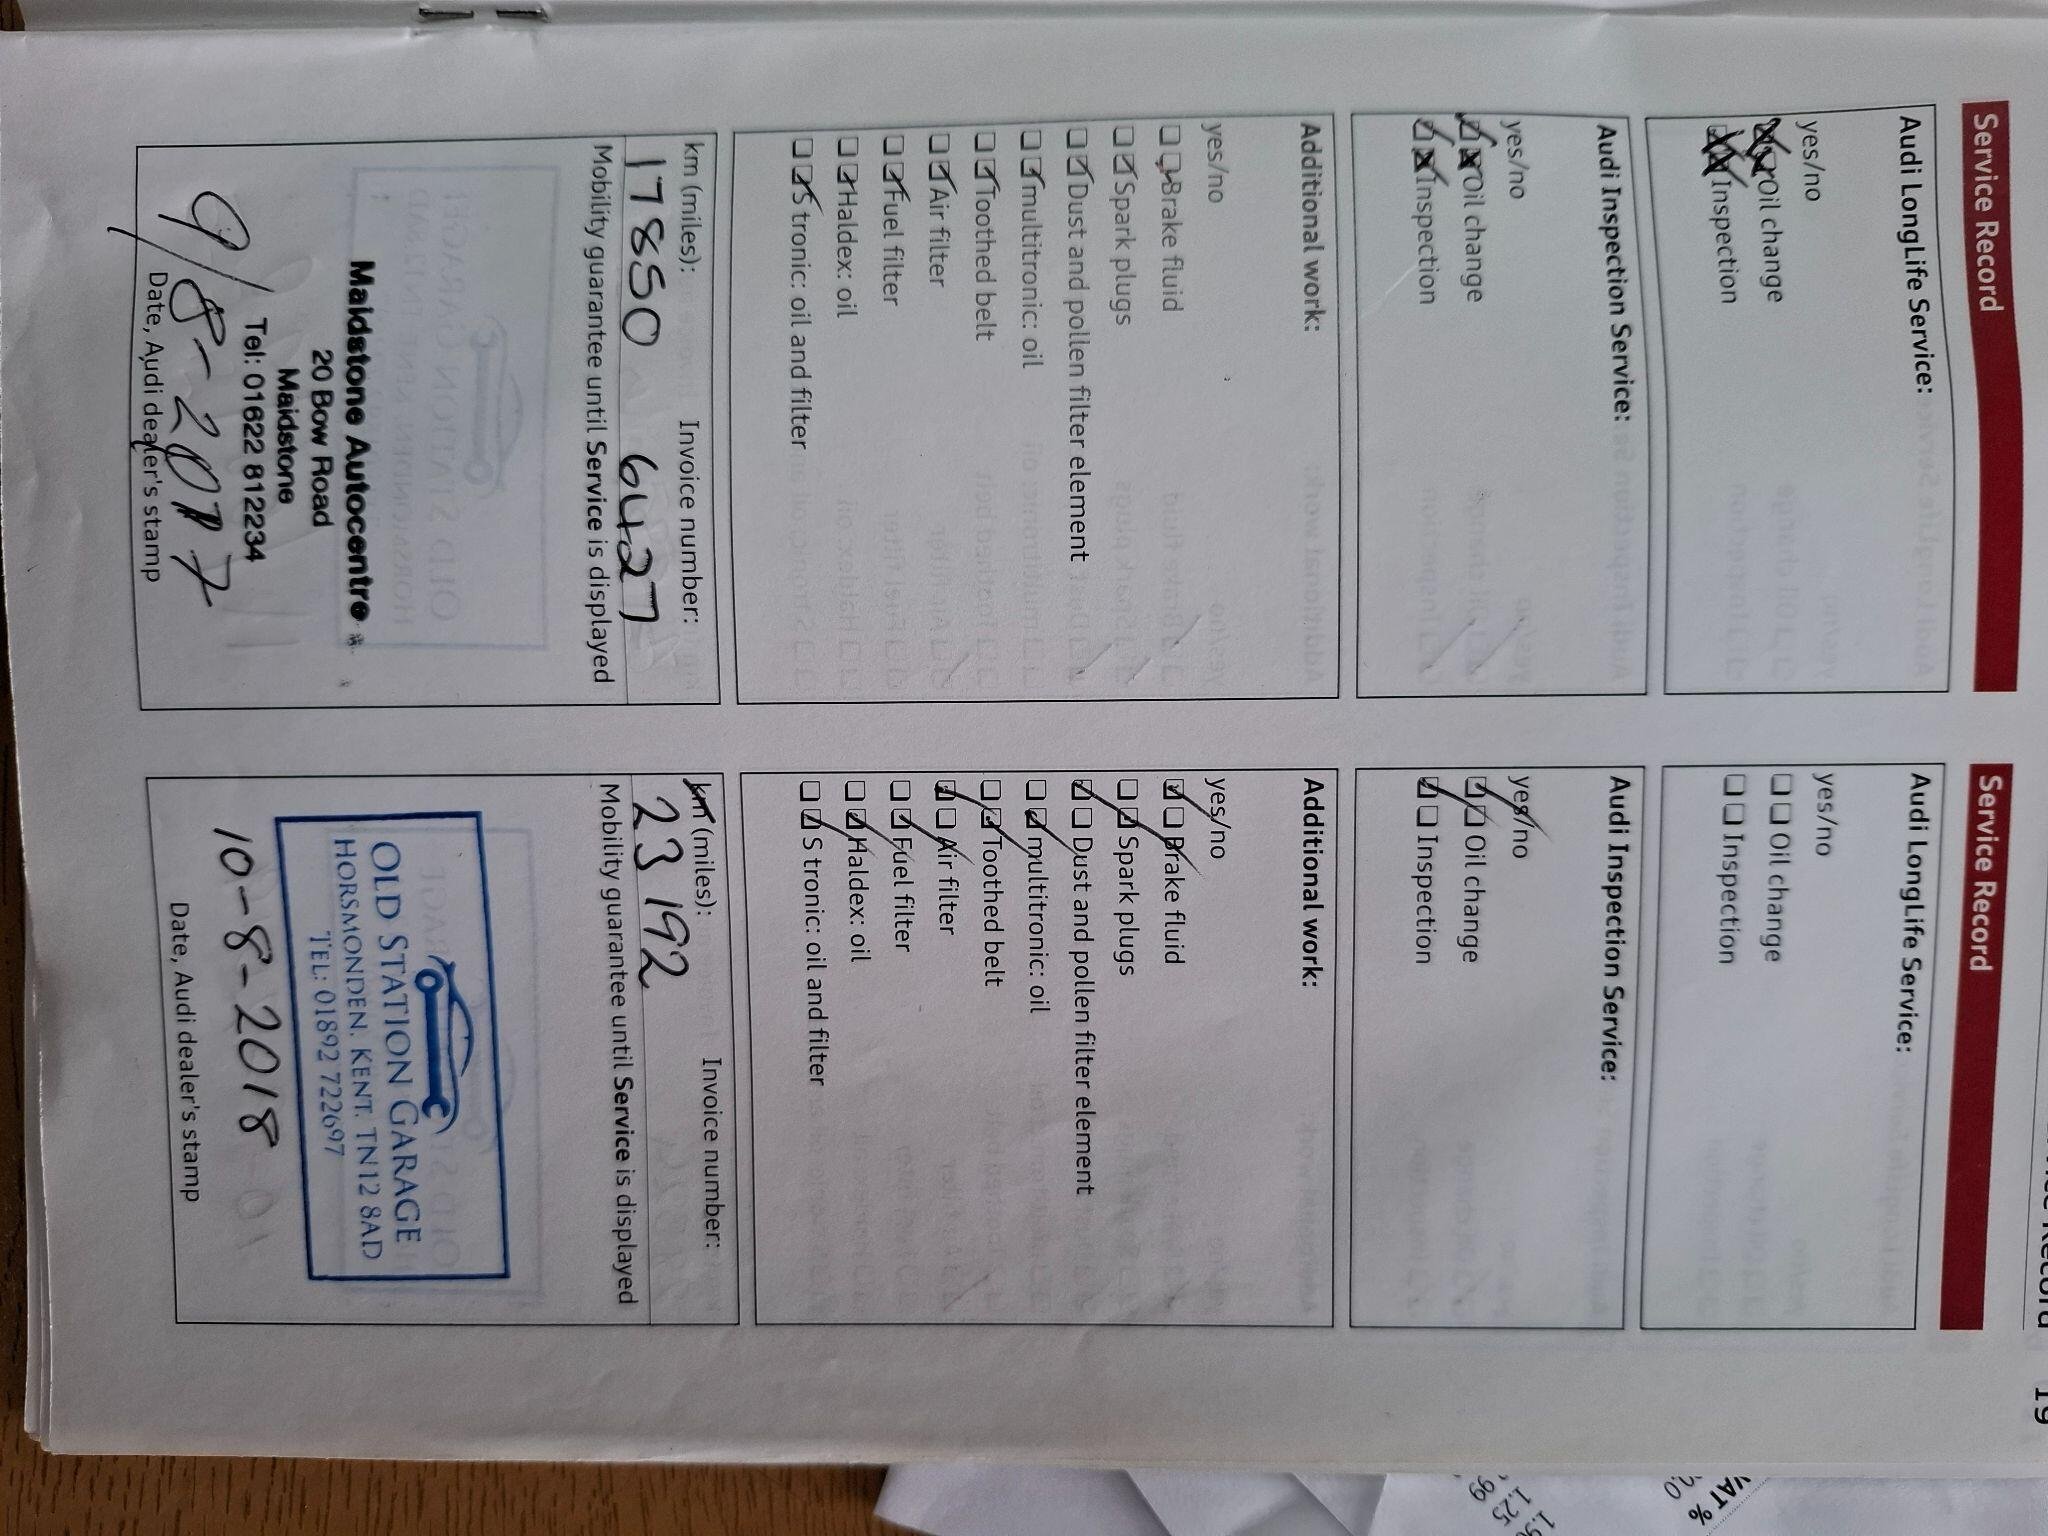 19
Service Record
Audi LongLife Service:
yes/no
Oil change
Inspection
Audi Inspection Service:
yes/no
Oil change
Inspection
Additional work:
yes/no
Brake fluid
Spark plugs
Dust and pollen filter element
multitronic: oil
Toothed belt
Air filter
Fuel filter
Haldex: oil
S tronic: oil and filter
km (miles): Invoice number:
17850 6427
Mobility guarantee until Service is displayed
Maidstone Autocentre
20 Bow Road
Maidstone
Tel: 01622 812234
9/8-2017
Date, Audi dealer's stamp
Service Record
Audi LongLife Service:
yes/no
Oil change
Inspection
Audi Inspection Service:
yes/no
Oil change
Inspection
Additional work:
yes/no
Brake fluid
Spark plugs
Dust and pollen filter element
multitronic: oil
Toothed belt
Air filter
Fuel filter
Haldex: oil
S tronic: oil and filter
km (miles): Invoice number:
23192
Mobility guarantee until Service is displayed
OLD STATION GARAGE
HORSMONDEN. KENT. TN12 8AD
TEL: 01892 722697
10-8-2018
Date, Audi dealer's stamp
VAT %
1.25